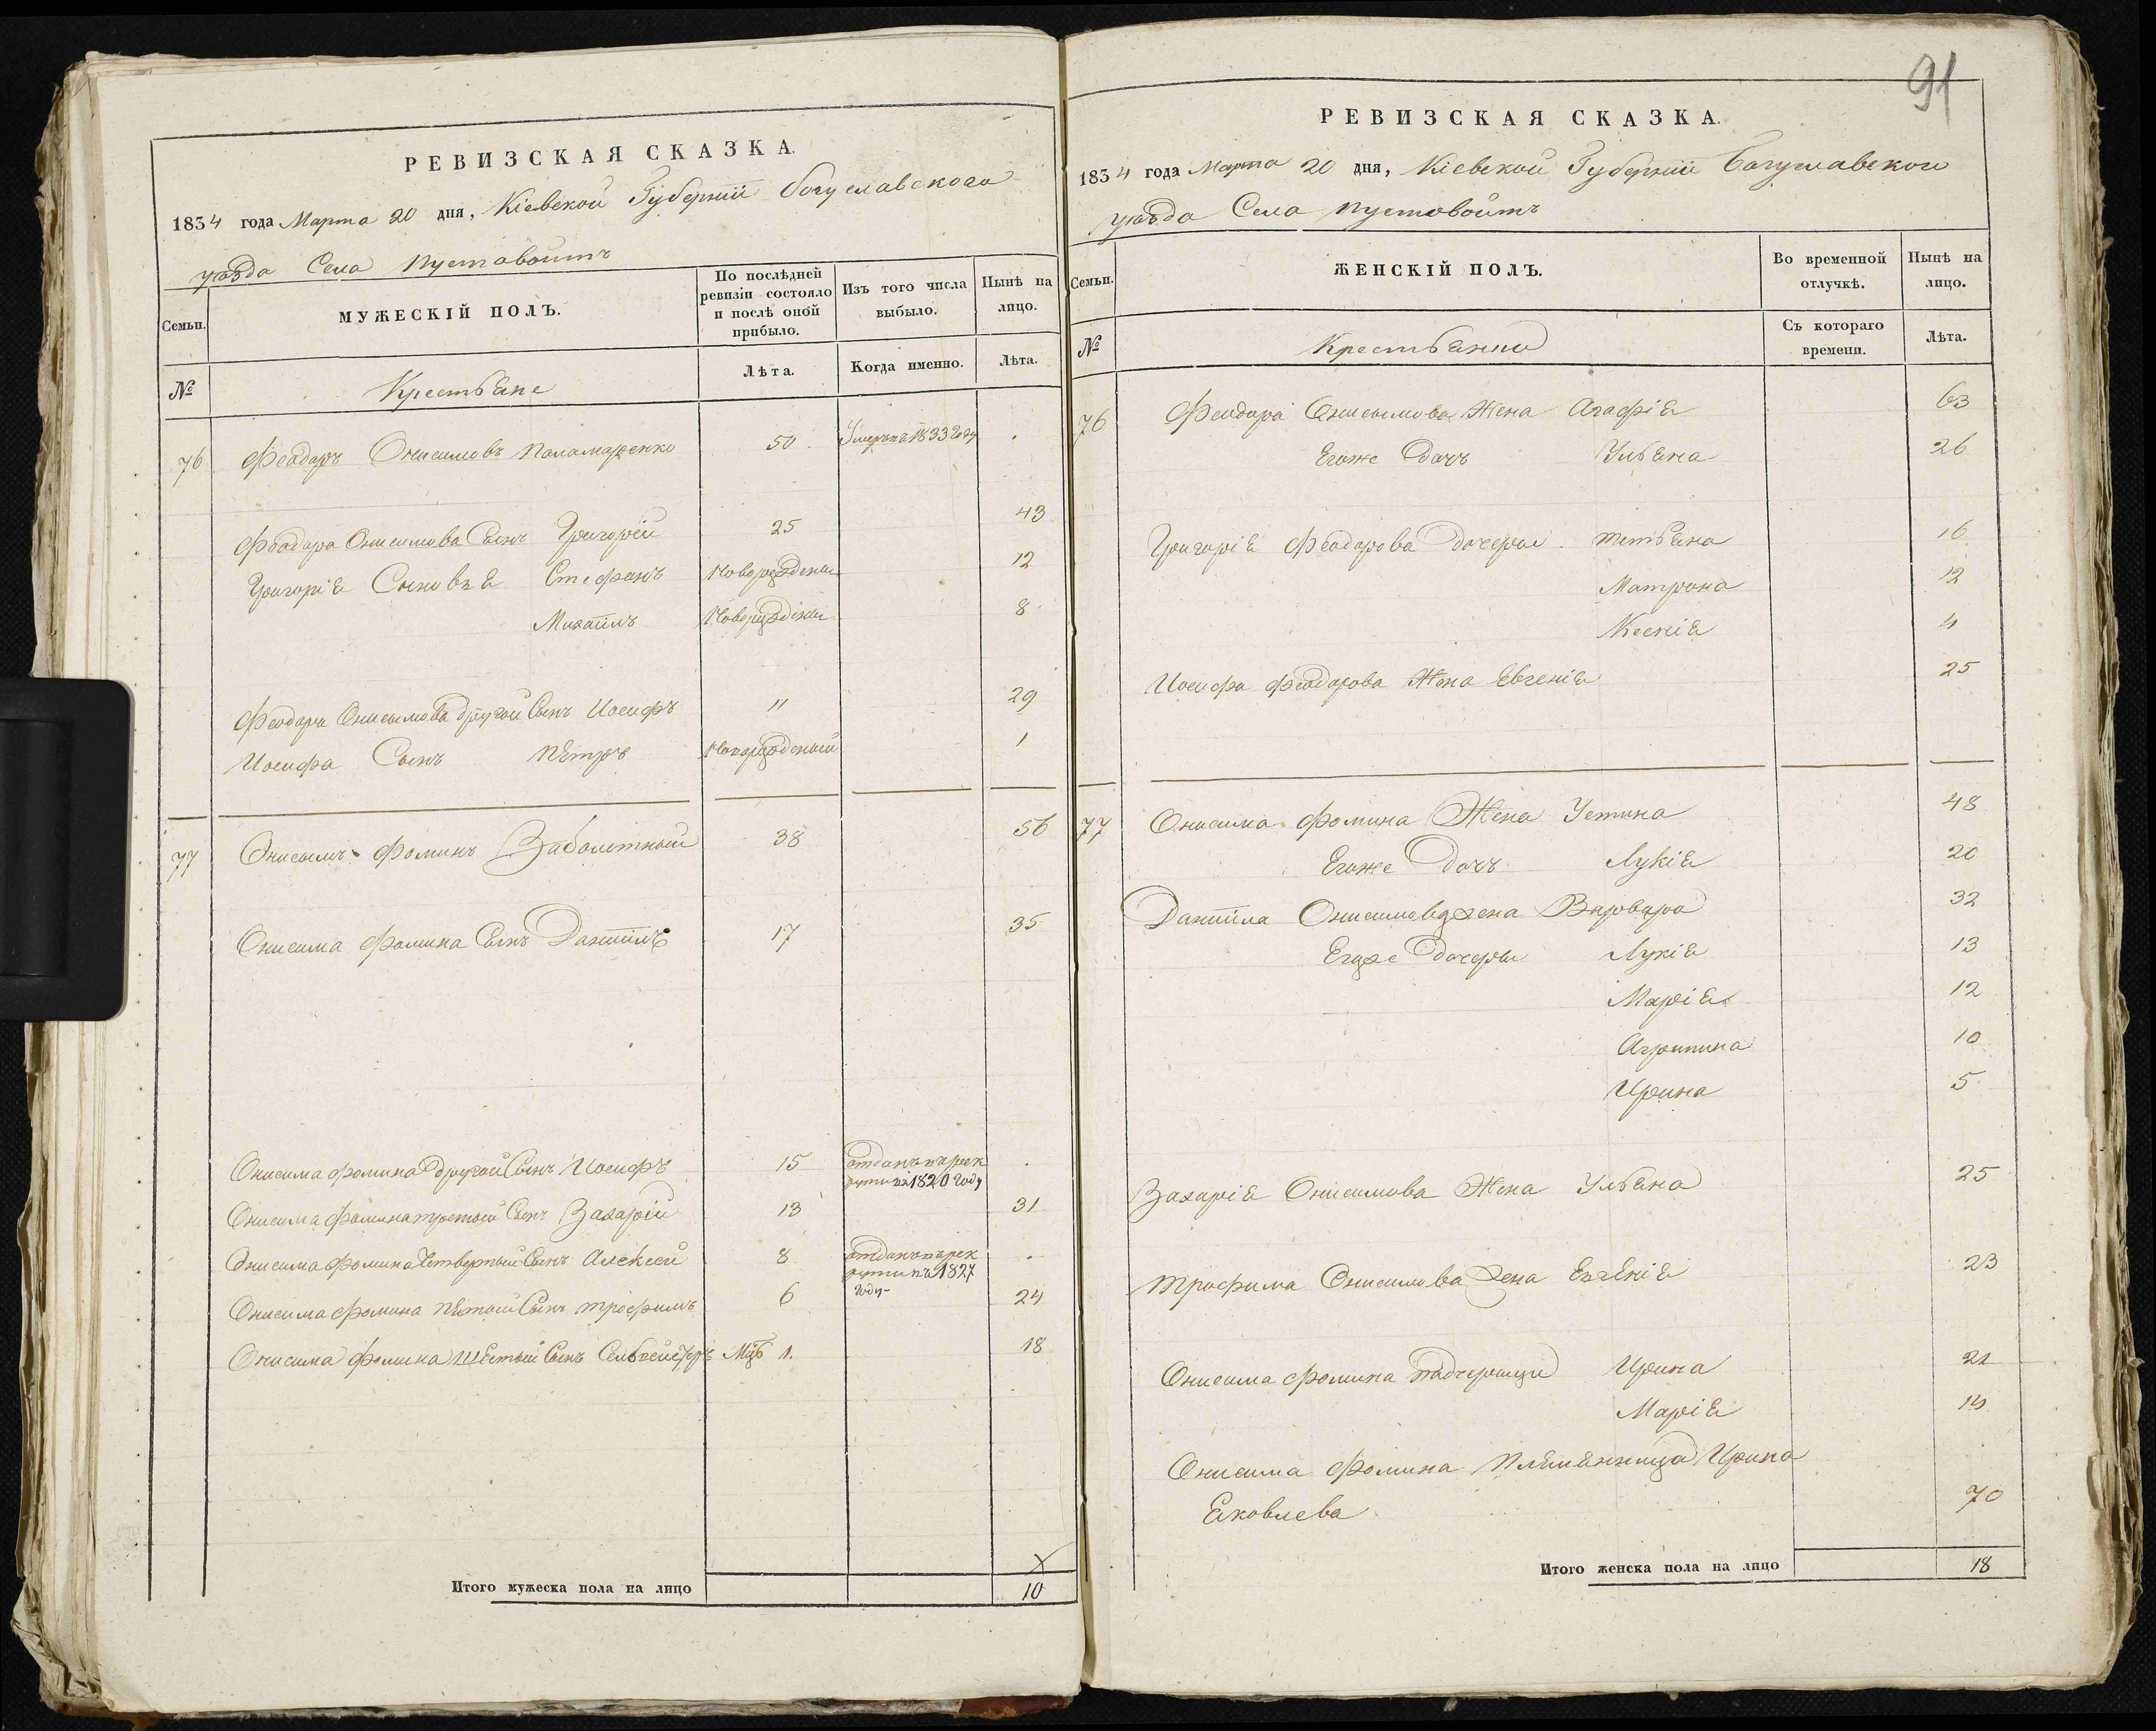 РЕВИЗСКАЯ СКАЗКА.
1834 года Марта 20 дня, Кіевской Губерніи Богуславского
уѣзда Села Пустовойтъ
Семьи. МУЖЕСКІЙ ПОЛЪ. По послѣдней ревизіи состояло и послѣ оной прибыло. Изъ того числа выбыло. Нынѣ на лицо.
№ Крестьяне Лѣта. Когда именно. Лѣта.
76 Феодоръ Онисимовъ Паламаренко 50 Умеръ въ 1833 году .
Феодора Онисимова Сынъ Григорій 25 43
Григорія Сыновья Стефанъ Новорождены 12
Михаилъ Новорожденъ 8
Феодора Онисимова другой Сынъ Иосифъ " 29
Иосифа Сынъ Пѣтръ Новорожденый 1
77 Онисимъ Фоминъ Заболотный 38 56
Онисима Фомина Сынъ Даніилъ 17 35
Онисима Фомина другой Сынъ Иосифъ 15 отданъ въ рек
рути въ 1820 году .
Онисима Фомина третый Сынъ Захарій 13 31
Онисима Фомина Четвертый Сынъ Алексей 8 отданъ въ рек
рути въ 1827
году .
Онисима Фомина пятый Сынъ Трофимъ 6 24
Онисима Фомина Шестый Сынъ Селвестръ 1. 18
Х
Итого мужеска пола на лицо 10
91
РЕВИЗСКАЯ СКАЗКА.
1834 года Марта 20 дня, Кіевской Губерніи Богуславского
уѣзда Села Пустовойтъ
Семьи. ЖЕНСКІЙ ПОЛЪ. Во временной отлучкѣ. Нынѣ на лицо.
№ Крестьянки Съ котораго времени. Лѣта.
76 Феодора Онисимова Жена Агафія 63
Егоже Дочъ Ульяна 26
Григорія Феодорова Дочери Тетьяна 16
Матрона 12
Ксенія 4
Иосифа Феодорова Жена Евгенія 25
77 Онисима Фомина Жена Устина 48
Егоже Дочъ Лукія 20
Даніила Онисимова жена Варвара 32
Егоже Дочеры Лукія 13
Марія 12
Агрипина 10
Ирина 5
Захарія Онисимова Жена Ульяна 25
Трофима Онисимова жена Евгенія 23
Онисима Фомина падчерицы Ирина 21
Марія 14
Онисима Фомина Племянница Ирина
Яковлева 70
Итого женска пола на лицо 18